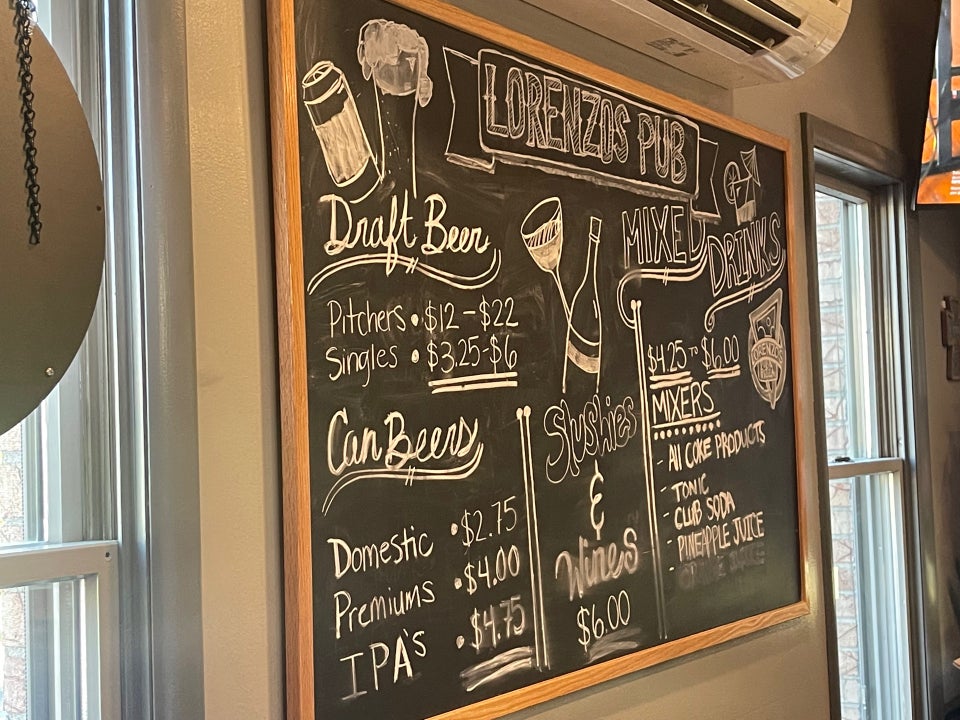 LORENZOS PUB
Draft Beer
Pitchers • $12 - $22
Singles • $3.25-$6
Can Beers
Domestic • $2.75
Premiums • $4.00
IPA's • $4.75
Slushies
&
Wines
$6.00
MIXED
DRINKS
$4.25 TO $6.00
MIXERS
- All COKE PRODUCTS
- TONIC
- CLUB SODA
- PINEAPPLE JUICE
LORENZOS